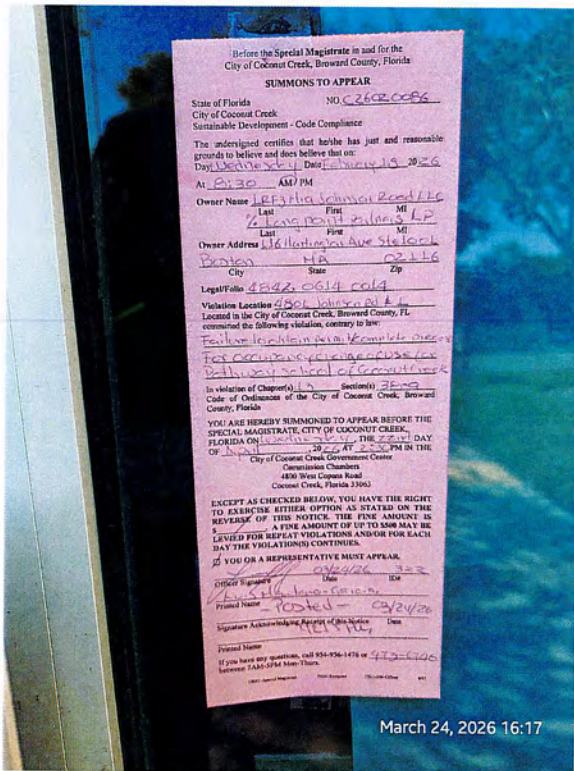 Before the Special Magistrate in and for the
City of Coconut Creek, Broward County, Florida
SUMMONS TO APPEAR
State of Florida NO. C26020086
City of Coconut Creek
Sustainable Development - Code Compliance
The undersigned certifies that he/she has just and reasonable
grounds to believe and does believe that on:
Day Wednesday Date February 19 2026
At 8:30 AM/PM
Owner Name LRF3 Mia Johnson Road LLC
Last First MI
% Longpoint LP
Last First MI
Owner Address 116 Huntington Ave Ste
Boston MA 02116
City State Zip
Legal/Folio 4842 0614 0014
Violation Location 4806 Johnson Rd
Located in the City of Coconut Creek, Broward County, FL
committed the following violation, contrary to law:
Failure to obtain permit/complete
For occupancy change of use for
Pathway School of Coconut Creek
In violation of Chapter(s) 13 Section(s)
Code of Ordinances of the City of Coconut Creek, Broward
County, Florida
YOU ARE HEREBY SUMMONED TO APPEAR BEFORE THE
SPECIAL MAGISTRATE, CITY OF COCONUT CREEK,
FLORIDA ON Wednesday, THE 22nd DAY
OF April, 2026 AT PM IN THE
City of Coconut Creek Government Center
Commission Chambers
4800 West Copans Road
Coconut Creek, Florida 33063
EXCEPT AS CHECKED BELOW, YOU HAVE THE RIGHT
TO EXERCISE EITHER OPTION AS STATED ON THE
REVERSE OF THIS NOTICE. THE FINE AMOUNT IS
$ . A FINE AMOUNT OF UP TO $500 MAY BE
LEVIED FOR REPEAT VIOLATIONS AND/OR FOR EACH
DAY THE VIOLATION(S) CONTINUES.
YOU OR A REPRESENTATIVE MUST APPEAR.
03/24/26 322
Officer Signature Date ID#
Printed Name - Posted - 03/24/26
Signature Acknowledging Receipt of this Notice Date
Printed Name
If you have any questions, call 954-956-1476 or
between 7AM-5PM Mon-Thurs.
March 24, 2026 16:17